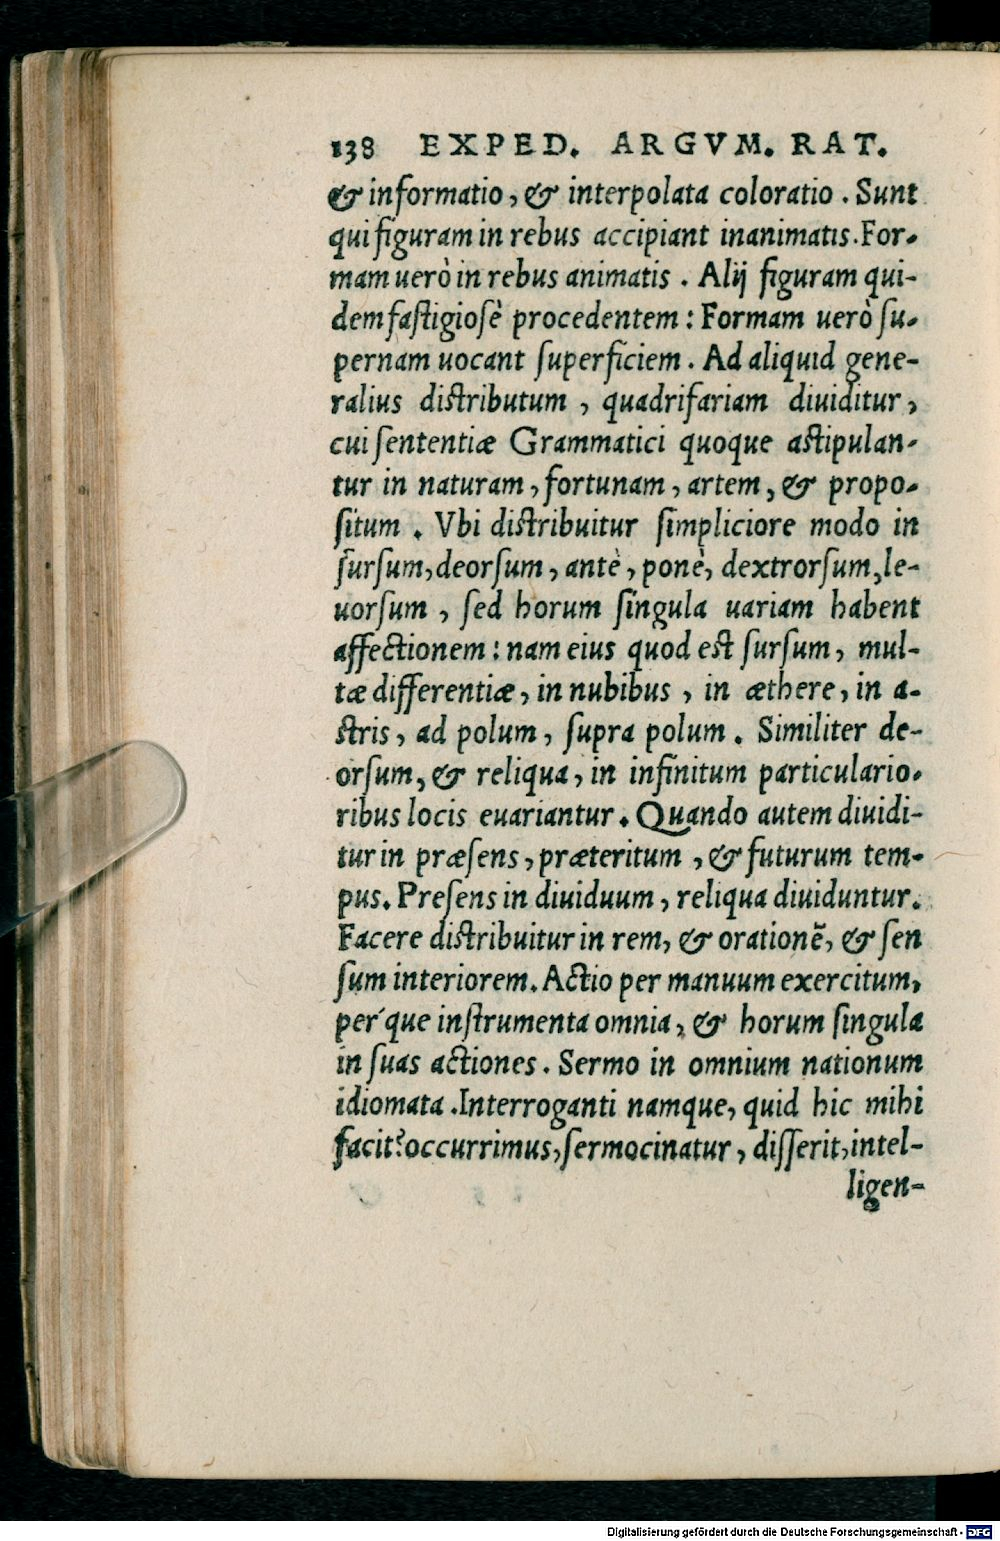 138 EXPED. ARGVM. RAT.
& informatio, & interpolata coloratio. Sunt
qui figuram in rebus accipiant inanimatis. For-
mam uerò in rebus animatis. Alij figuram qui-
dem fastigiosè procedentem: Formam uerò su-
pernam uocant superficiem. Ad aliquid gene-
ralius distributum, quadrifariam diuiditur,
cui sententiæ Grammatici quoque astipulan-
tur in naturam, fortunam, artem, & propo-
situm. Vbi distribuitur simpliciore modo in
sursum, deorsum, antè, ponè, dextrorsum, le-
uorsum, sed horum singula uariam habent
affectionem: nam eius quod est sursum, mul-
tæ differentiæ, in nubibus, in æthere, in a-
stris, ad polum, supra polum. Similiter de-
orsum, & reliqua, in infinitum particulario-
ribus locis euariantur. Quando autem diuidi-
tur in præsens, præteritum, & futurum tem-
pus. Presens in diuiduum, reliqua diuiduntur.
Facere distribuitur in rem, & orationẽ, & sen
sum interiorem. Actio per manuum exercitum,
per´que instrumenta omnia, & horum singula
in suas actiones. Sermo in omnium nationum
idiomata. Interroganti namque, quid hic mihi
facit? occurrimus, sermocinatur, disserit, intel-
ligen-
Digitalisierung gefördert durch die Deutsche Forschungsgemeinschaft - DFG